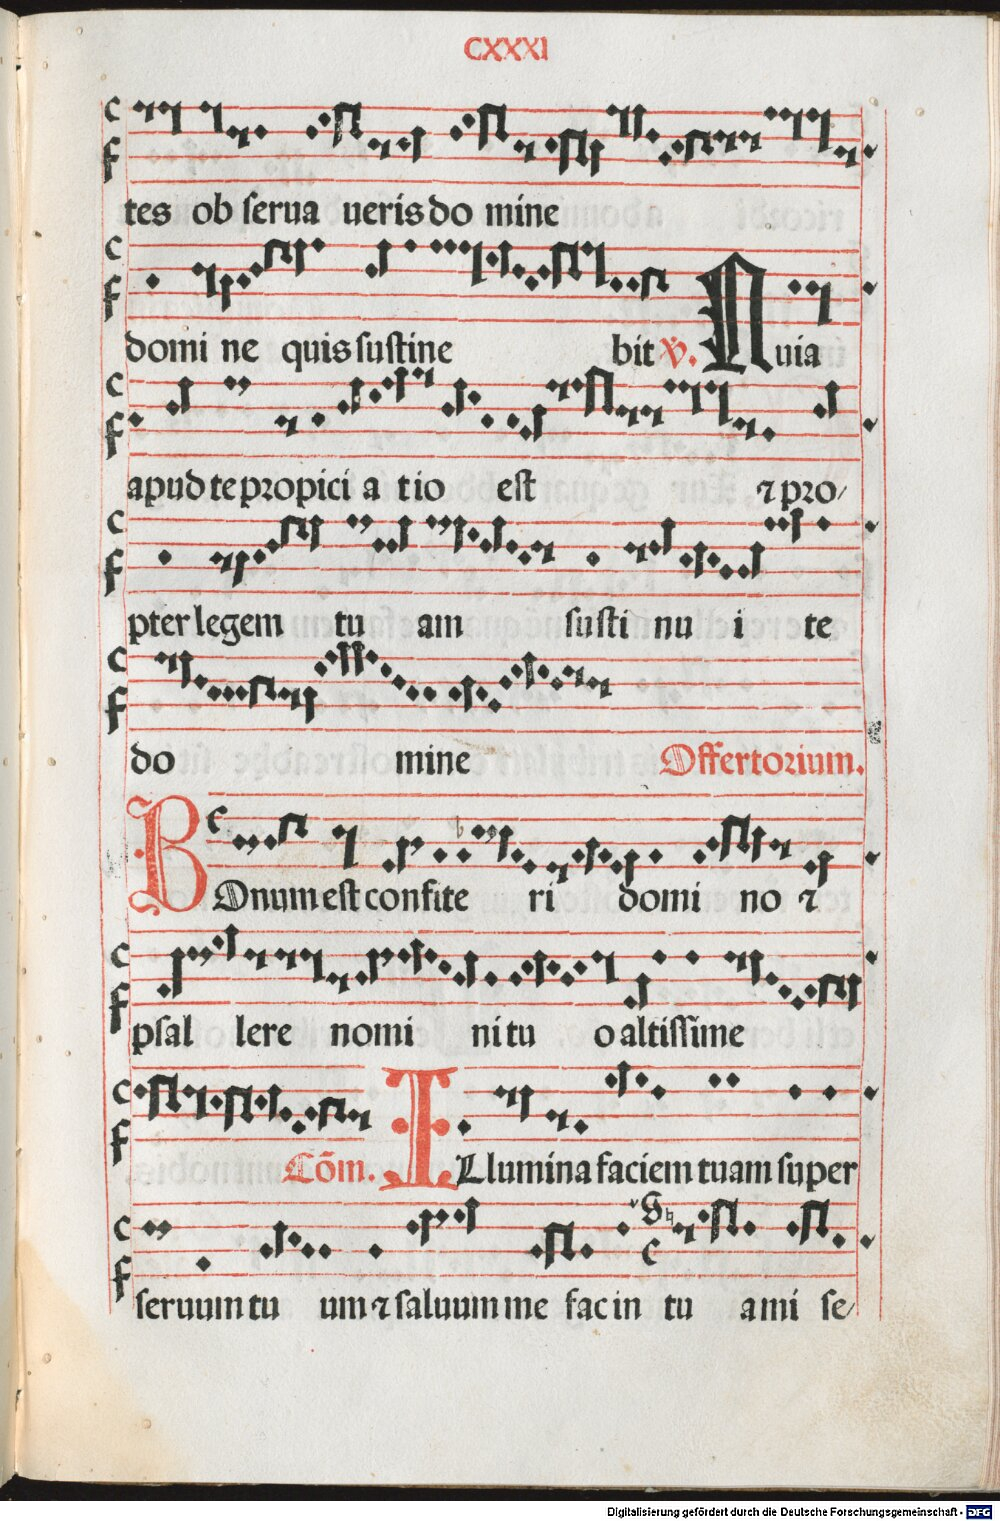 CXXXI
tes ob serua ueris do mine
domi ne quis sustine bit ℣. Quia
apud te propici a tio est ⁊ pro/
pter legem tu am susti nu i te
do mine Offertorium.
BOnum est confite ri domi no ⁊
psal lere nomi ni tu o altissime
Cōm. ILlumina faciem tuam super
seruum tu um ⁊ saluum me fac in tu a mi se/
Digitalisierung gefördert durch die Deutsche Forschungsgemeinschaft - DFG